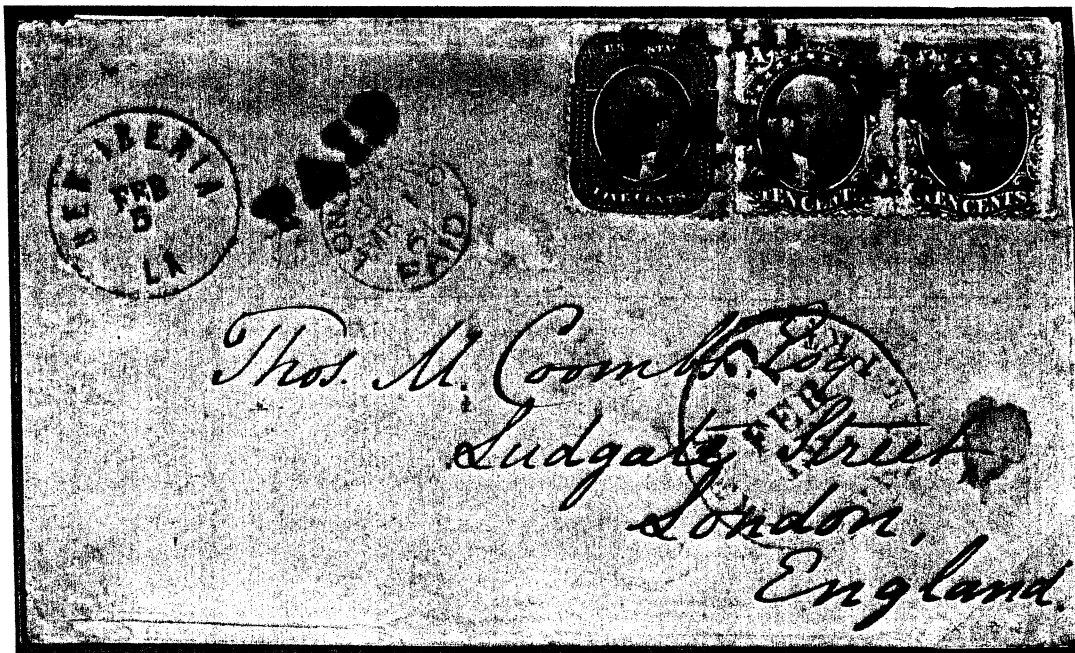 NEW IBERIA
FEB
5
LA
PAID
LONDON
MR
PAID
FIVE CENTS
TEN CENTS
TEN CENTS
Thos. M. Coombs Esqr
Ludgate Street
London,
England.
FEB